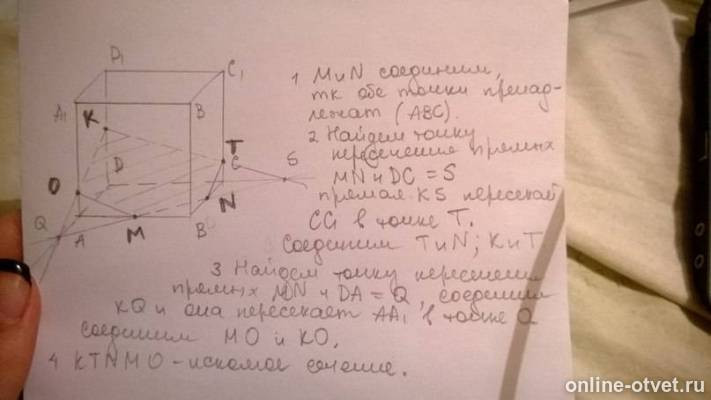 D₁
C₁
A₁
B
K
T
C
S
D
O
N
Q
A
M
B
1 M и N соединим,
тк обе точки принад-
лежат (ABC).
2 Найдем точку
пересечения прямых
MN и DC = S
прямая KS пересекает
CC₁ в точке T.
Соединим T и N; K и T
3 Найдем точку пересечения
прямых MN и DA = Q, соединим
KQ и она пересекает AA₁ в точке O
соединим MO и KO.
4 KTNMO - искомое сечение.
online-otvet.ru